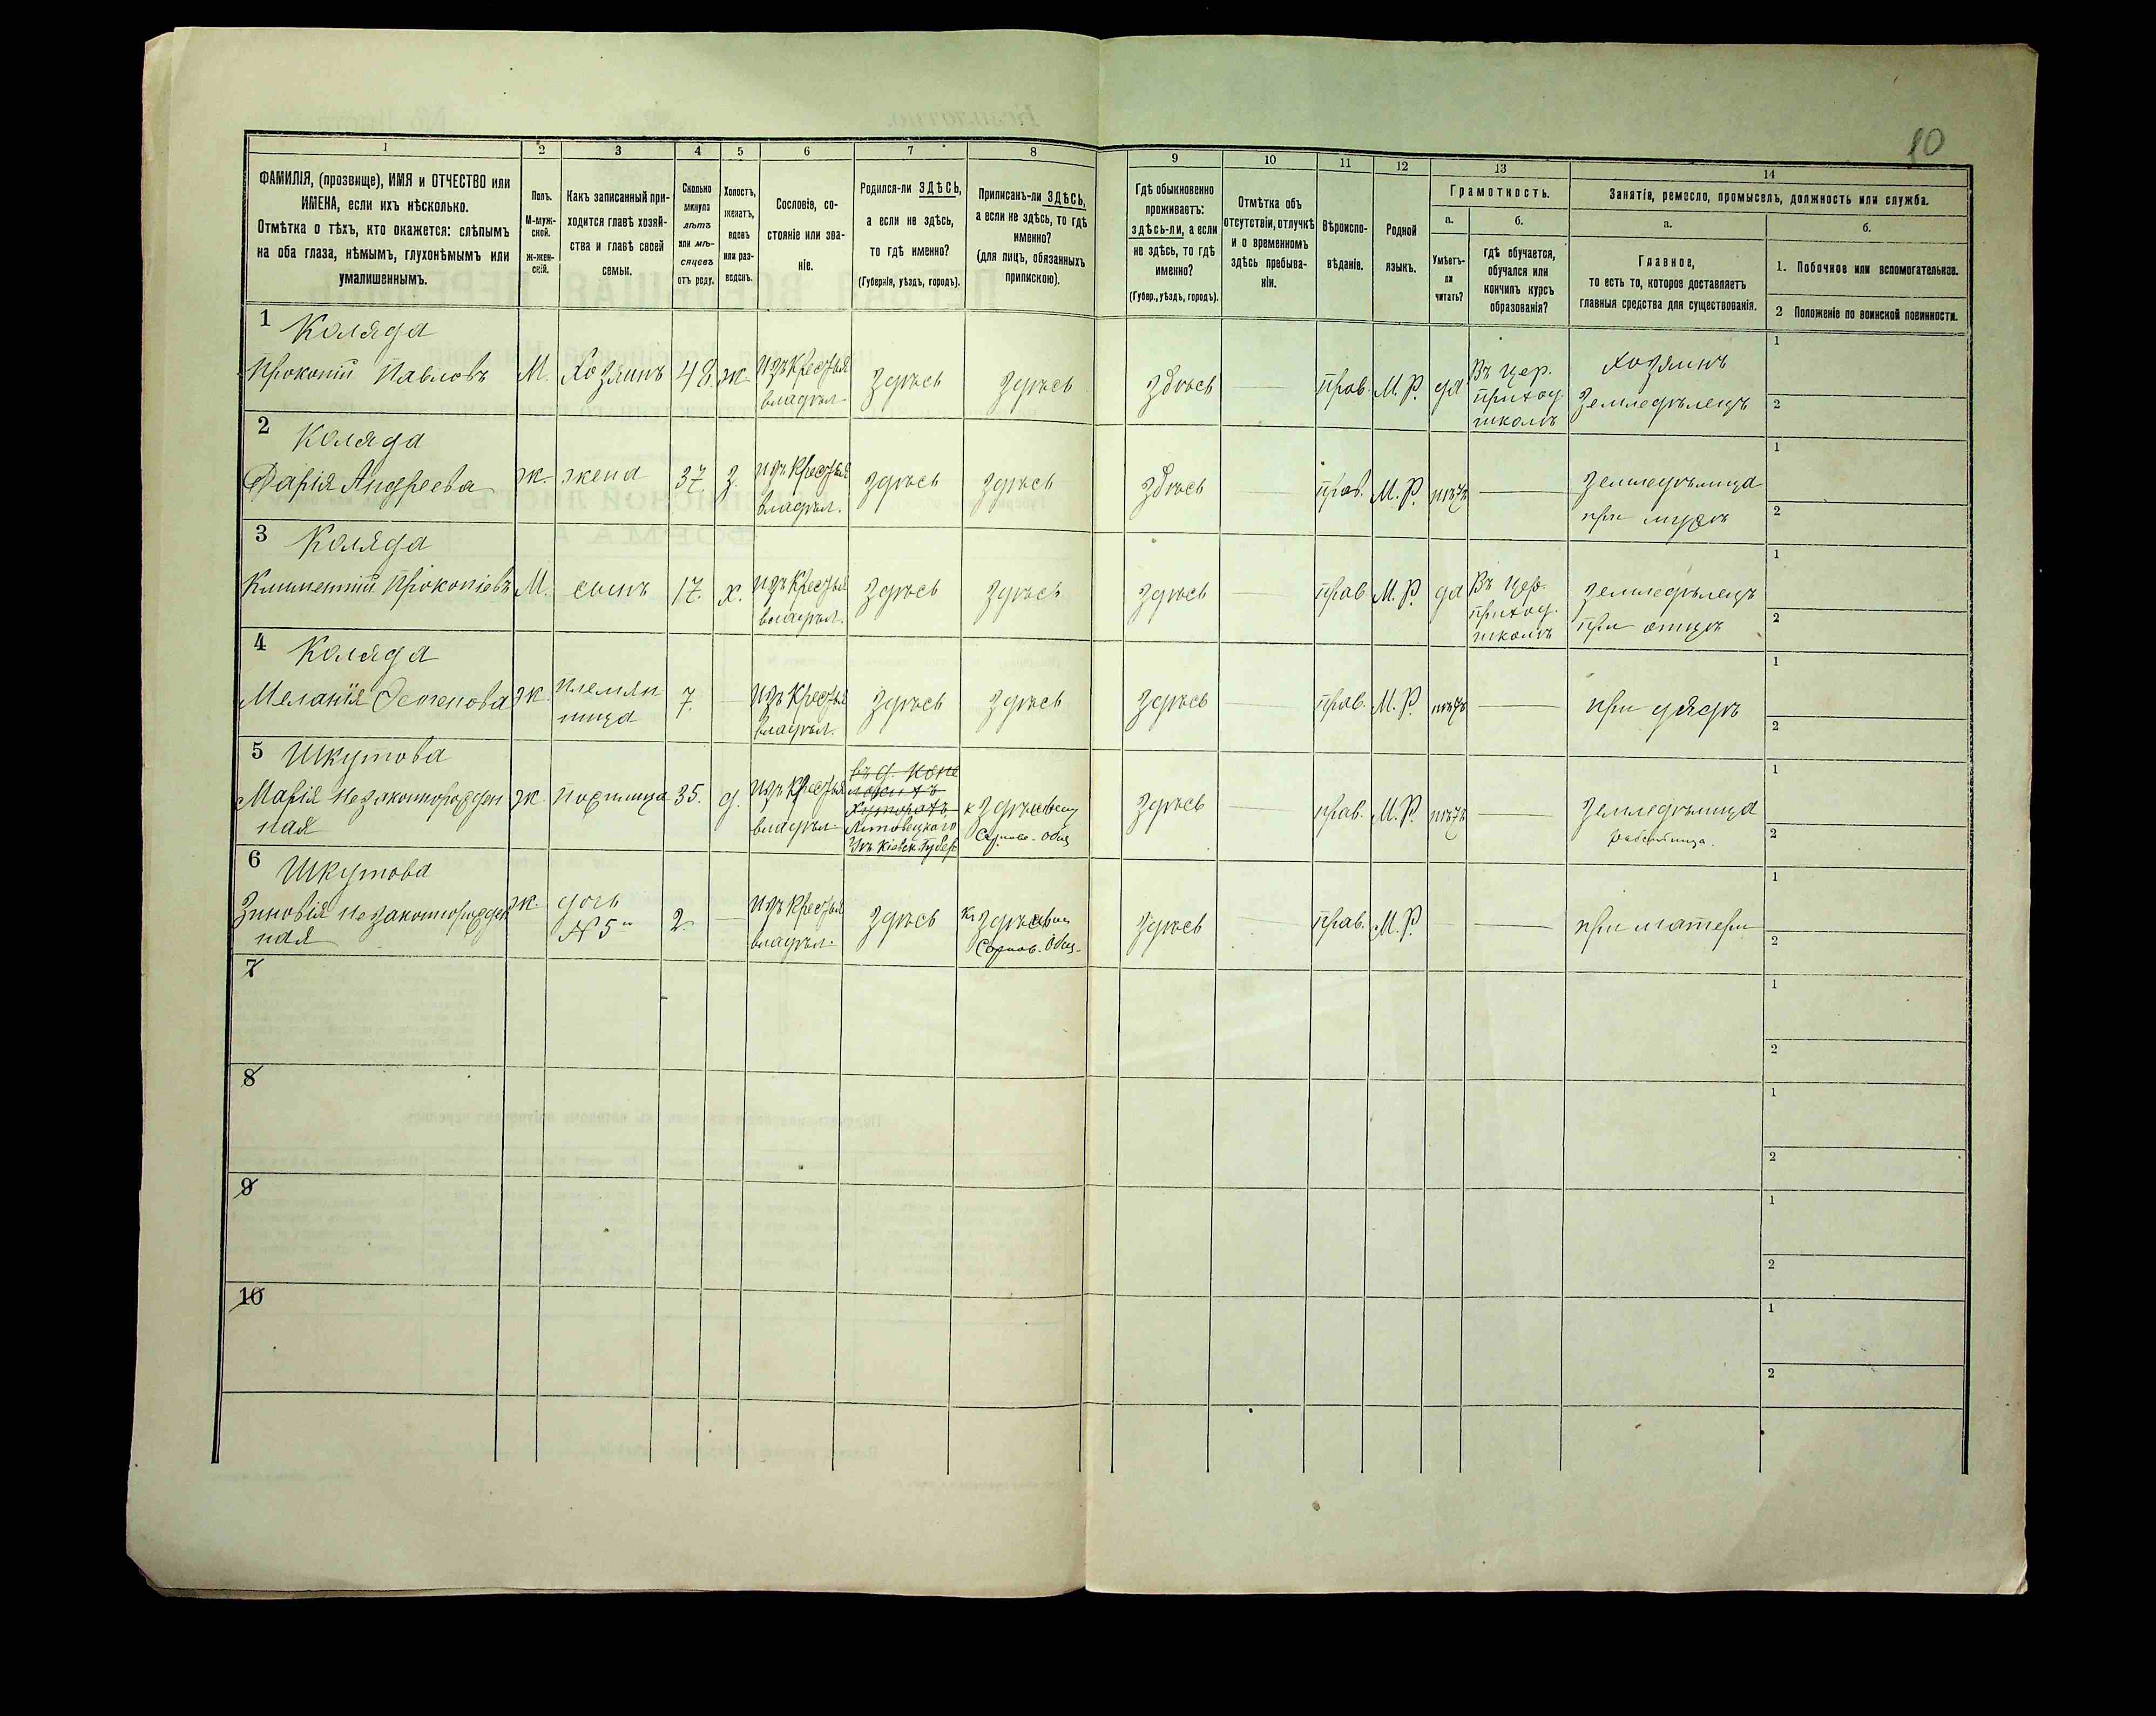 10
1 2 3 4 5 6 7 8 9 10 11 12 13 14
ФАМИЛІЯ, (прозвище), ИМЯ и ОТЧЕСТВО или
ИМЕНА, если ихъ нѣсколько.
Отмѣтка о тѣхъ, кто окажется: слѣпымъ
на оба глаза, нѣмымъ, глухонѣмымъ или
умалишеннымъ.
Полъ.
М-муж-
ской.
ж-жен-
скій.
Какъ записанный при-
ходится главѣ хозяй-
ства и главѣ своей
семьи.
Сколько
минуло
лѣтъ
или мѣ-
сяцевъ
отъ роду.
Холостъ,
женатъ,
вдовъ
или раз-
веденъ.
Сословіе, со-
стояніе или зва-
ніе.
Родился-ли ЗДѢСЬ,
а если не здѣсь,
то гдѣ именно?
(Губернія, уѣздъ, городъ).
Приписанъ-ли ЗДѢСЬ,
а если не здѣсь, то гдѣ
именно?
(для лицъ, обязанныхъ
припискою).
Гдѣ обыкновенно
проживаетъ:
здѣсь-ли, а если
не здѣсь, то гдѣ
именно?
(Губер., уѣздъ, городъ).
Отмѣтка объ
отсутствіи, отлучкѣ
и о временномъ
здѣсь пребыва-
ніи.
Вѣроиспо-
вѣданіе.
Родной
языкъ.
Грамотность.
а.
Умѣетъ-
ли
читать?
б.
гдѣ обучается,
обучался или
кончилъ курсъ
образованія?
Занятіе, ремесло, промыселъ, должность или служба.
а.
Главное,
то есть то, которое доставляетъ
главныя средства для существованія.
б.
1. Побочное или вспомогательное.
2 Положеніе по воинской повинности.
1 Коляда
Прокопій Павловъ
М.
Хозяинъ
48.
ж.
Изъ Крестья
владѣл.
Здѣсь
Здѣсь
Здѣсь
Прав.
М. Р.
да
Въ Цер.
приход.
школѣ
Хозяинъ
Земледѣлецъ
1
2
2 Коляда
Дарія Андреева
ж.
жена
37
З.
Изъ Крестья
владѣл.
Здѣсь
Здѣсь
Здѣсь
Прав.
М. Р.
нѣтъ
Земледѣлица
при мужѣ
1
2
3 Коляда
Климентій Прокопіевъ
М.
сынъ
17.
х.
Изъ Крестья
владѣл.
Здѣсь
Здѣсь
Здѣсь
Прав
М. Р.
да
Въ Цер.
приход.
школѣ
Земледѣлецъ
при отцѣ
1
2
4 Коляда
Меланія Остапова
ж.
Племян
ница
7.
Изъ Крестья
владѣл.
Здѣсь
Здѣсь
Здѣсь
Прав.
М. Р.
нѣтъ
при дядѣ
1
2
5 Шкутова
Марія незаконнорожден
ная
ж.
35.
д.
Изъ Крестья
владѣл.
въ д.
Хуторахъ
Липовецкаго
Уѣ. Кіевск. Губер.
к Здѣшнему
Общ
Здѣсь
прав.
М. Р.
нѣтъ
Земледѣлица
Работница.
1
2
6 Шкутова
Зиновія незаконнорожден
ная
ж.
дочь
№ 5го
2
Изъ Крестья
владѣл.
Здѣсь
Къ
Общ.
Здѣсь
Прав.
М. Р.
при матери
1
2
7
1
2
8
1
2
9
1
2
10
1
2